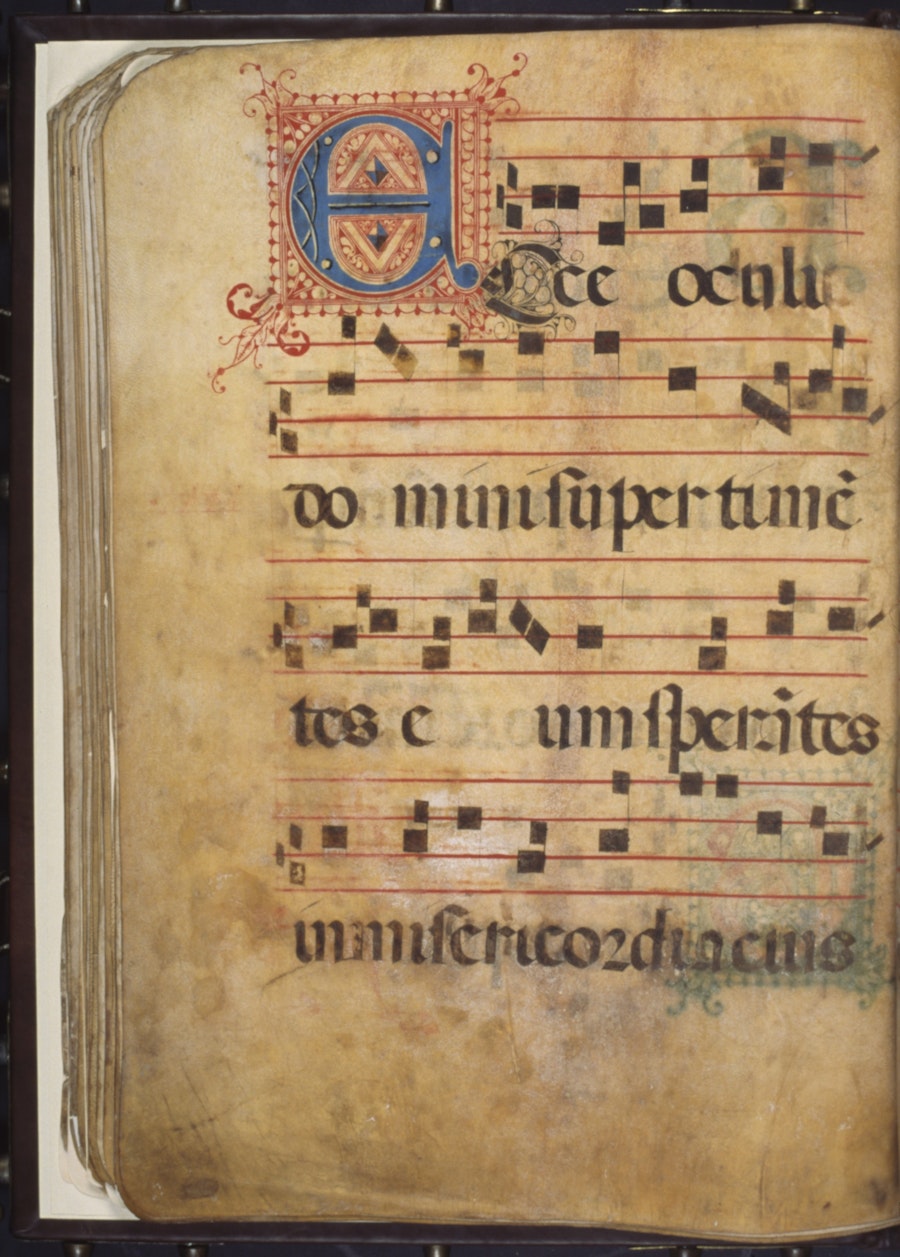 Ecce oculi
do mini super timẽ
tes e um sperãtes
in misericordia eius